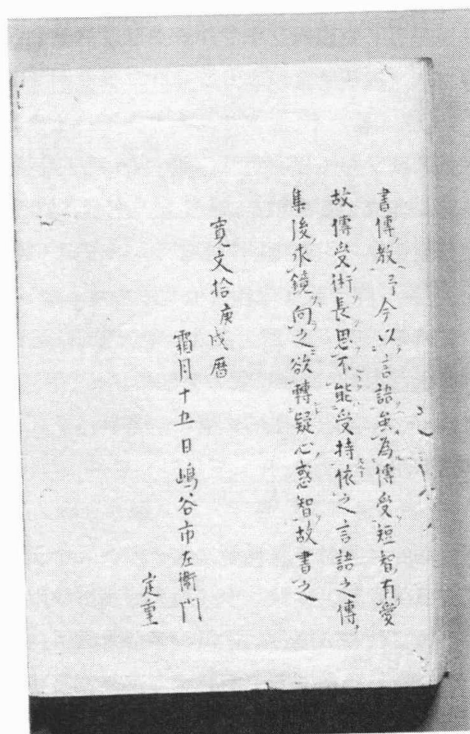 書傳教予今以言語矣為傳受短智有愛
故傳受術長思不能受持依之言語之傳
集後永鏡向之欲轉疑心惑智故書之
寛文拾庚戌暦
霜月十五日嶋谷市左衛門
定重